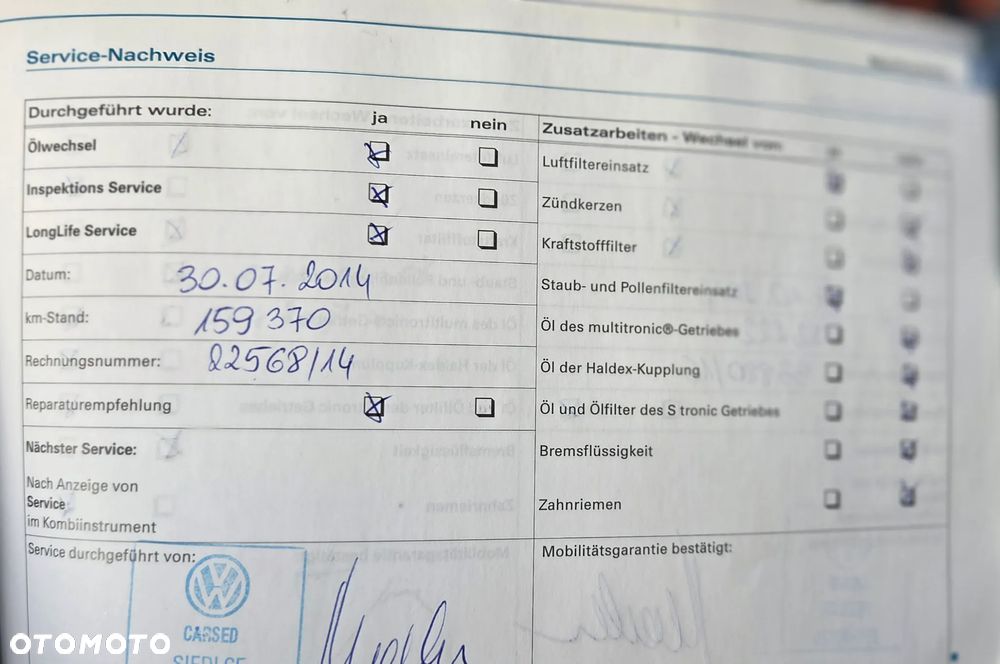 Service-Nachweis
Durchgeführt wurde:
ja
nein
Ölwechsel
Inspektions Service
LongLife Service
Datum: 30.07.2014
km-Stand: 159 370
Rechnungsnummer: 22568/14
Reparaturempfehlung
Nächster Service:
Nach Anzeige von
Service
im Kombiinstrument
Service durchgeführt von:
CARSED
SIEDLCE
Zusatzarbeiten - Wechsel vom
Luftfiltereinsatz
Zündkerzen
Kraftstofffilter
Staub- und Pollenfiltereinsatz
Öl des multitronic®-Getriebes
Öl der Haldex-Kupplung
Öl und Ölfilter des S tronic Getriebes
Bremsflüssigkeit
Zahnriemen
Mobilitätsgarantie bestätigt:
OTOMOTO